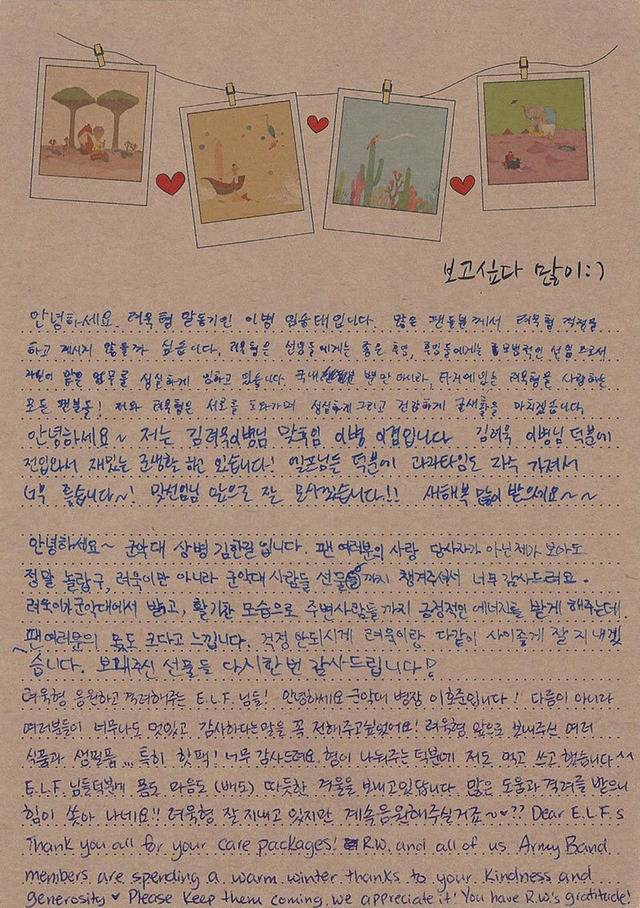 보고싶다 많이:)
안녕하세요. 려욱형 맞동기인 이병 임승태입니다. 많은 팬분들께서 려욱형 걱정을
하고 계시지 않을까 싶습니다. 려욱형은 선임들에게는 좋은 후임, 후임들에게는 모범적인 선임으로서
자신이 맡은 임무를 성실하게 임하고 있습니다. 국내 뿐만 아니라, 타지에 있는 려욱형을 사랑하는
모든 팬분들! 저와 려욱형은 서로를 도와가며 성실하게 그리고 건강하게 군생활을 마치겠습니다.
안녕하세요~ 저는 김려욱이병님 맞후임 이병 입니다 김려욱 이병님 덕분에
전입와서 재밌는 군생활 하고 있습니다! 엘프님들 덕분에 과자타임도 자주 가져서
너무 좋습니다~! 맞선임님 앞으로 잘 모시겠습니다!! 새해복 많이 받으세요~~
안녕하세요~ 군악대 상병 김한길입니다. 팬 여러분의 사랑 당사자가 아닌 제가 보아도
정말 놀랍구, 려욱이만 아니라 군악대 사람들 선물까지 챙겨주셔서 너무 감사드려요.
려욱이가 군악대에서 밝고, 활기찬 모습으로 주변사람들까지 긍정적인 에너지를 받게 해주는데
팬 여러분의 몫도 크다고 느낍니다. 걱정 안되시게 려욱이랑 다같이 사이좋게 잘 지내겠
습니다. 보내주신 선물들 다시한번 감사드립니다!
려욱형 응원하고 격려해주는 E.L.F 님들! 안녕하세요 군악대 병장 이호준입니다! 다름이 아니라
여러분들이 너무나도 멋있고 감사하다는 말을 꼭 전해주고싶었어요! 려욱형 앞으로 보내주신 여러
식품과 생필품... 특히 핫팩! 너무 감사드려요. 형이 나눠주는 덕분에 저도 먹고 쓰고 했습니다^^
E.L.F 님들덕분에 몸도 마음도 (배도) 따듯한 겨울을 보내고있답니다. 많은 도움과 격려를 받으니
힘이 솟아 나네요!! 려욱형 잘 지내고 있지만 계속 응원해주실거죠~♥?? Dear E.L.F.s
Thank you all for your care packages! R.W. and all of us Army Band
members are spending a warm winter thanks to your kindness and
generosity ♥ Please keep them coming, we appreciate it! You have R.W's gratitude!